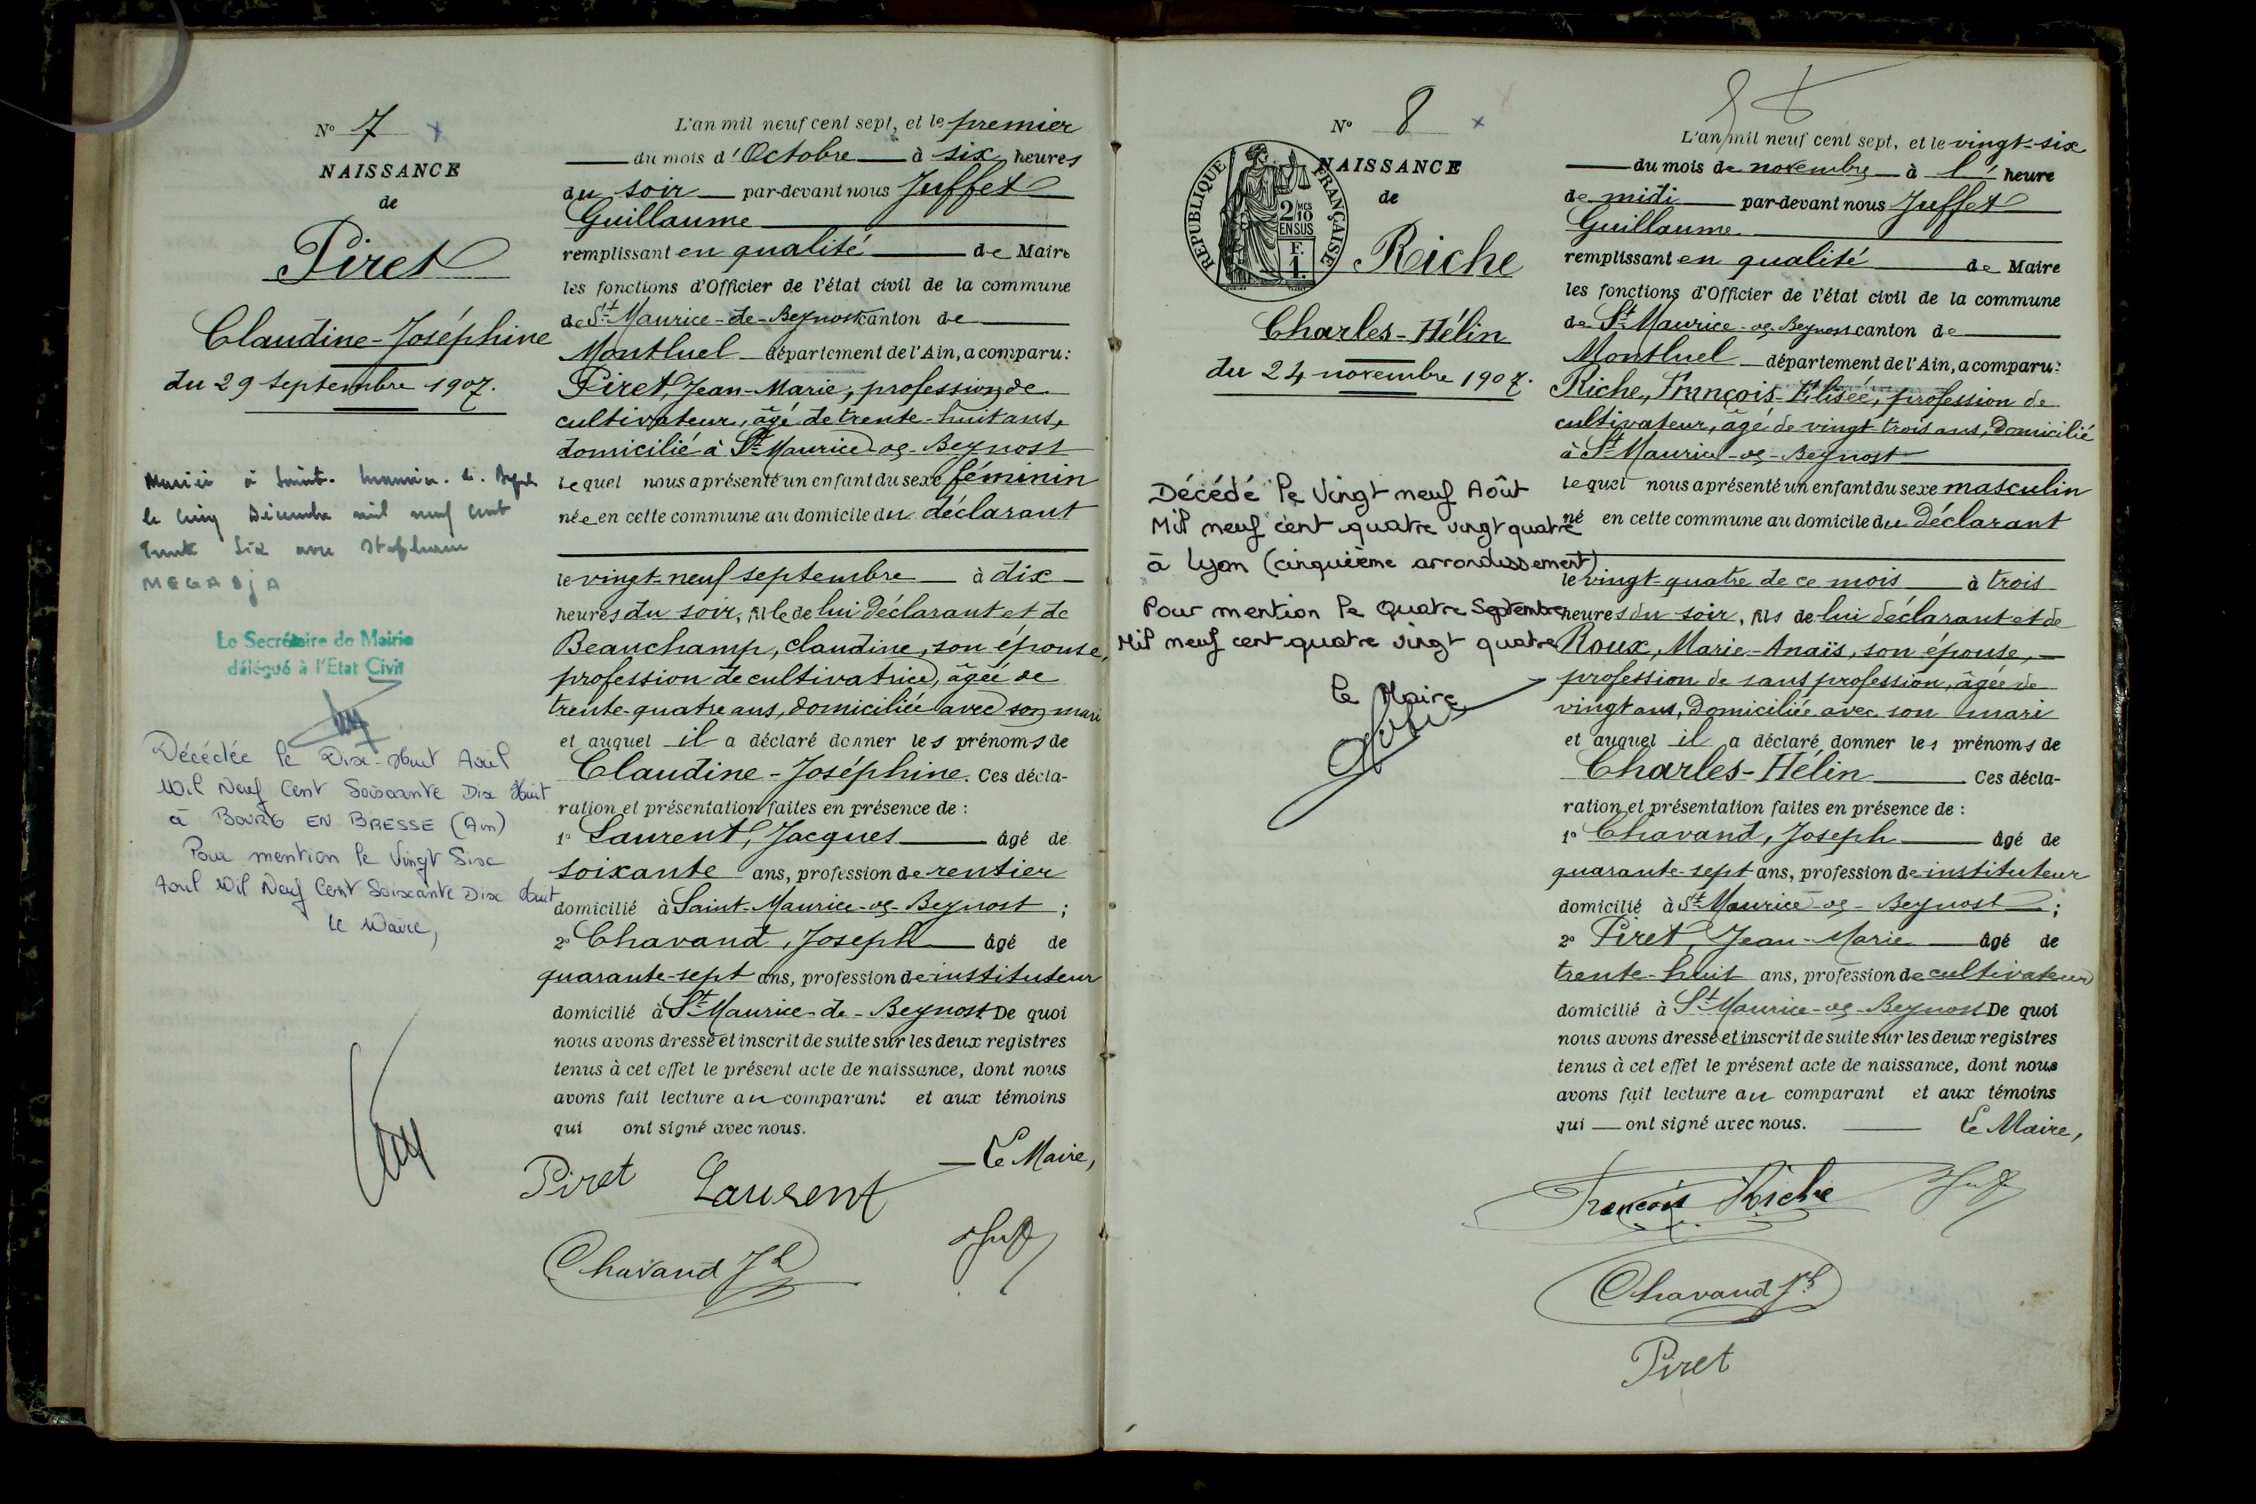 N° 7
NAISSANCE
de
Piret
Claudine-Joséphine
du 29 septembre 1907.
le cinq Décembre mil neuf cent
trente six avec
MEGADJA
Le Secrétaire de Mairie
délégué à l'Etat Civil
Décédée le Dix-Huit Aout
Mil Neuf Cent Soixante Dix Huit
à BOURG EN BRESSE (Ain)
Pour mention le Vingt Six
Aout Mil Neuf Cent Soixante Dix Huit
Le Maire,
L'an mil neuf cent sept, et le premier
du mois d'Octobre à six heures
du soir par-devant nous Juffet
Guillaume
remplissant en qualité de Maire
les fonctions d'Officier de l'état civil de la commune
de St Maurice-de-Beynost canton de
Montluel département de l'Ain, a comparu:
Piret, Jean-Marie, profession de
cultivateur, âgé de trente-huit ans,
domicilié à St Maurice-de-Beynost
lequel nous a présenté un enfant du sexe féminin
née en cette commune au domicile du déclarant
le vingt-neuf septembre à dix
heures du soir, fille de lui déclarant et de
Beauchamp, Claudine, son épouse,
profession de cultivatrice, âgée de
trente-quatre ans, domiciliée avec son mari
et auquel il a déclaré donner les prénoms de
Claudine-Joséphine. Ces décla-
ration et présentation faites en présence de :
1° Laurent, Jacques âgé de
soixante ans, profession de rentier
domicilié à Saint-Maurice-de-Beynost ;
2° Chavand, Joseph âgé de
quarante-sept ans, profession de instituteur
domicilié à St Maurice-de-Beynost De quoi
nous avons dressé et inscrit de suite sur les deux registres
tenus à cet effet le présent acte de naissance, dont nous
avons fait lecture au comparant et aux témoins
qui ont signé avec nous.
Le Maire,
Piret Laurent
Chavand Jh
N° 8
NAISSANCE
de
REPUBLIQUE FRANÇAISE
2/10
MES
EN SUS
F.
1.
Riche
Charles-Hélin
du 24 novembre 1907.
Décédé le Vingt neuf Août
Mil neuf cent quatre vingt quatre
à Lyon (cinquième arrondissement)
Pour mention le Quatre Septembre
Mil neuf cent quatre vingt quatre
le Maire
L'an mil neuf cent sept, et le vingt-six
du mois de novembre à l' heure
de midi par-devant nous Juffet
Guillaume
remplissant en qualité de Maire
les fonctions d'Officier de l'état civil de la commune
de St Maurice-de-Beynost canton de
Montluel département de l'Ain, a comparu:
Riche, François-Elisée, profession de
cultivateur, âgé de vingt-trois ans, domicilié
à St Maurice-de-Beynost
lequel nous a présenté un enfant du sexe masculin
né en cette commune au domicile du déclarant
le vingt-quatre de ce mois à trois
heures du soir, fils de lui déclarant et de
Roux, Marie-Anaïs, son épouse,
profession de sans profession, âgée de
vingt ans, domiciliée avec son mari
et auquel il a déclaré donner les prénoms de
Charles-Hélin Ces décla-
ration et présentation faites en présence de :
1° Chavand, Joseph âgé de
quarante-sept ans, profession de instituteur
domicilié à St Maurice-de-Beynost ;
2° Piret, Jean-Marie âgé de
trente-huit ans, profession de cultivateur
domicilié à St Maurice-de-Beynost De quoi
nous avons dressé et inscrit de suite sur les deux registres
tenus à cet effet le présent acte de naissance, dont nous
avons fait lecture au comparant et aux témoins
qui ont signé avec nous. Le Maire,
François Riche
Chavand Jh
Piret